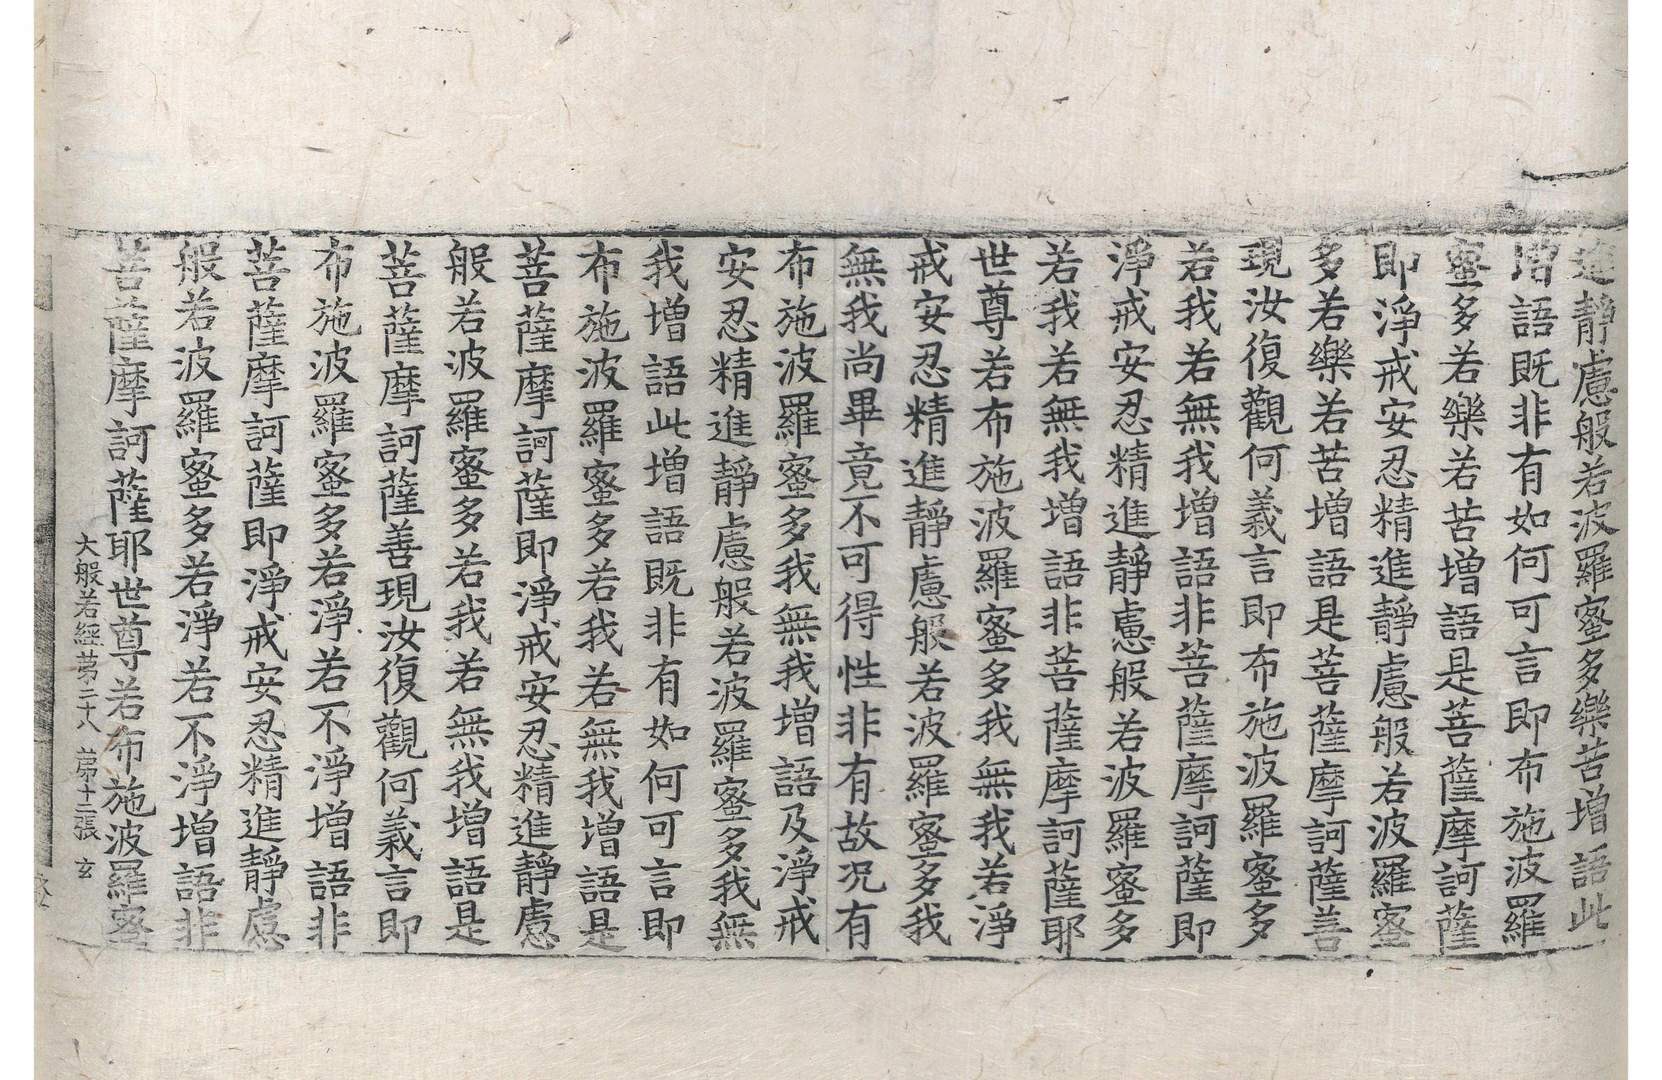 進靜慮般若波羅蜜多樂苦增語此
增語既非有如何可言即布施波羅
蜜多若樂若苦增語是菩薩摩訶薩
即淨戒安忍精進靜慮般若波羅蜜
多若樂若苦增語是菩薩摩訶薩善
現汝復觀何義言即布施波羅蜜多
若我若無我增語非菩薩摩訶薩即
淨戒安忍精進靜慮般若波羅蜜多
若我若無我增語非菩薩摩訶薩耶
世尊若布施波羅蜜多我無我若淨
戒安忍精進靜慮般若波羅蜜多我
無我尚畢竟不可得性非有故況有
布施波羅蜜多我無我增語及淨戒
安忍精進靜慮般若波羅蜜多我無
我增語此增語既非有如何可言即
布施波羅蜜多若我若無我增語是
菩薩摩訶薩即淨戒安忍精進靜慮
般若波羅蜜多若我若無我增語是
菩薩摩訶薩善現汝復觀何義言即
布施波羅蜜多若淨若不淨增語非
菩薩摩訶薩即淨戒安忍精進靜慮
般若波羅蜜多若淨若不淨增語非
菩薩摩訶薩耶世尊若布施波羅蜜
大般若經第二十八 第十二張 玄